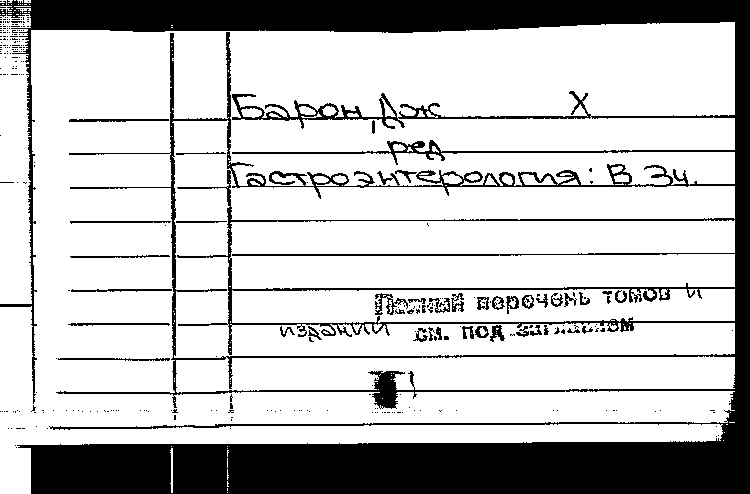 Барон, Дж X
ред
Гастроэнтерология: В 3ч.
Полный перечень томов и
изданий см. под заглавием